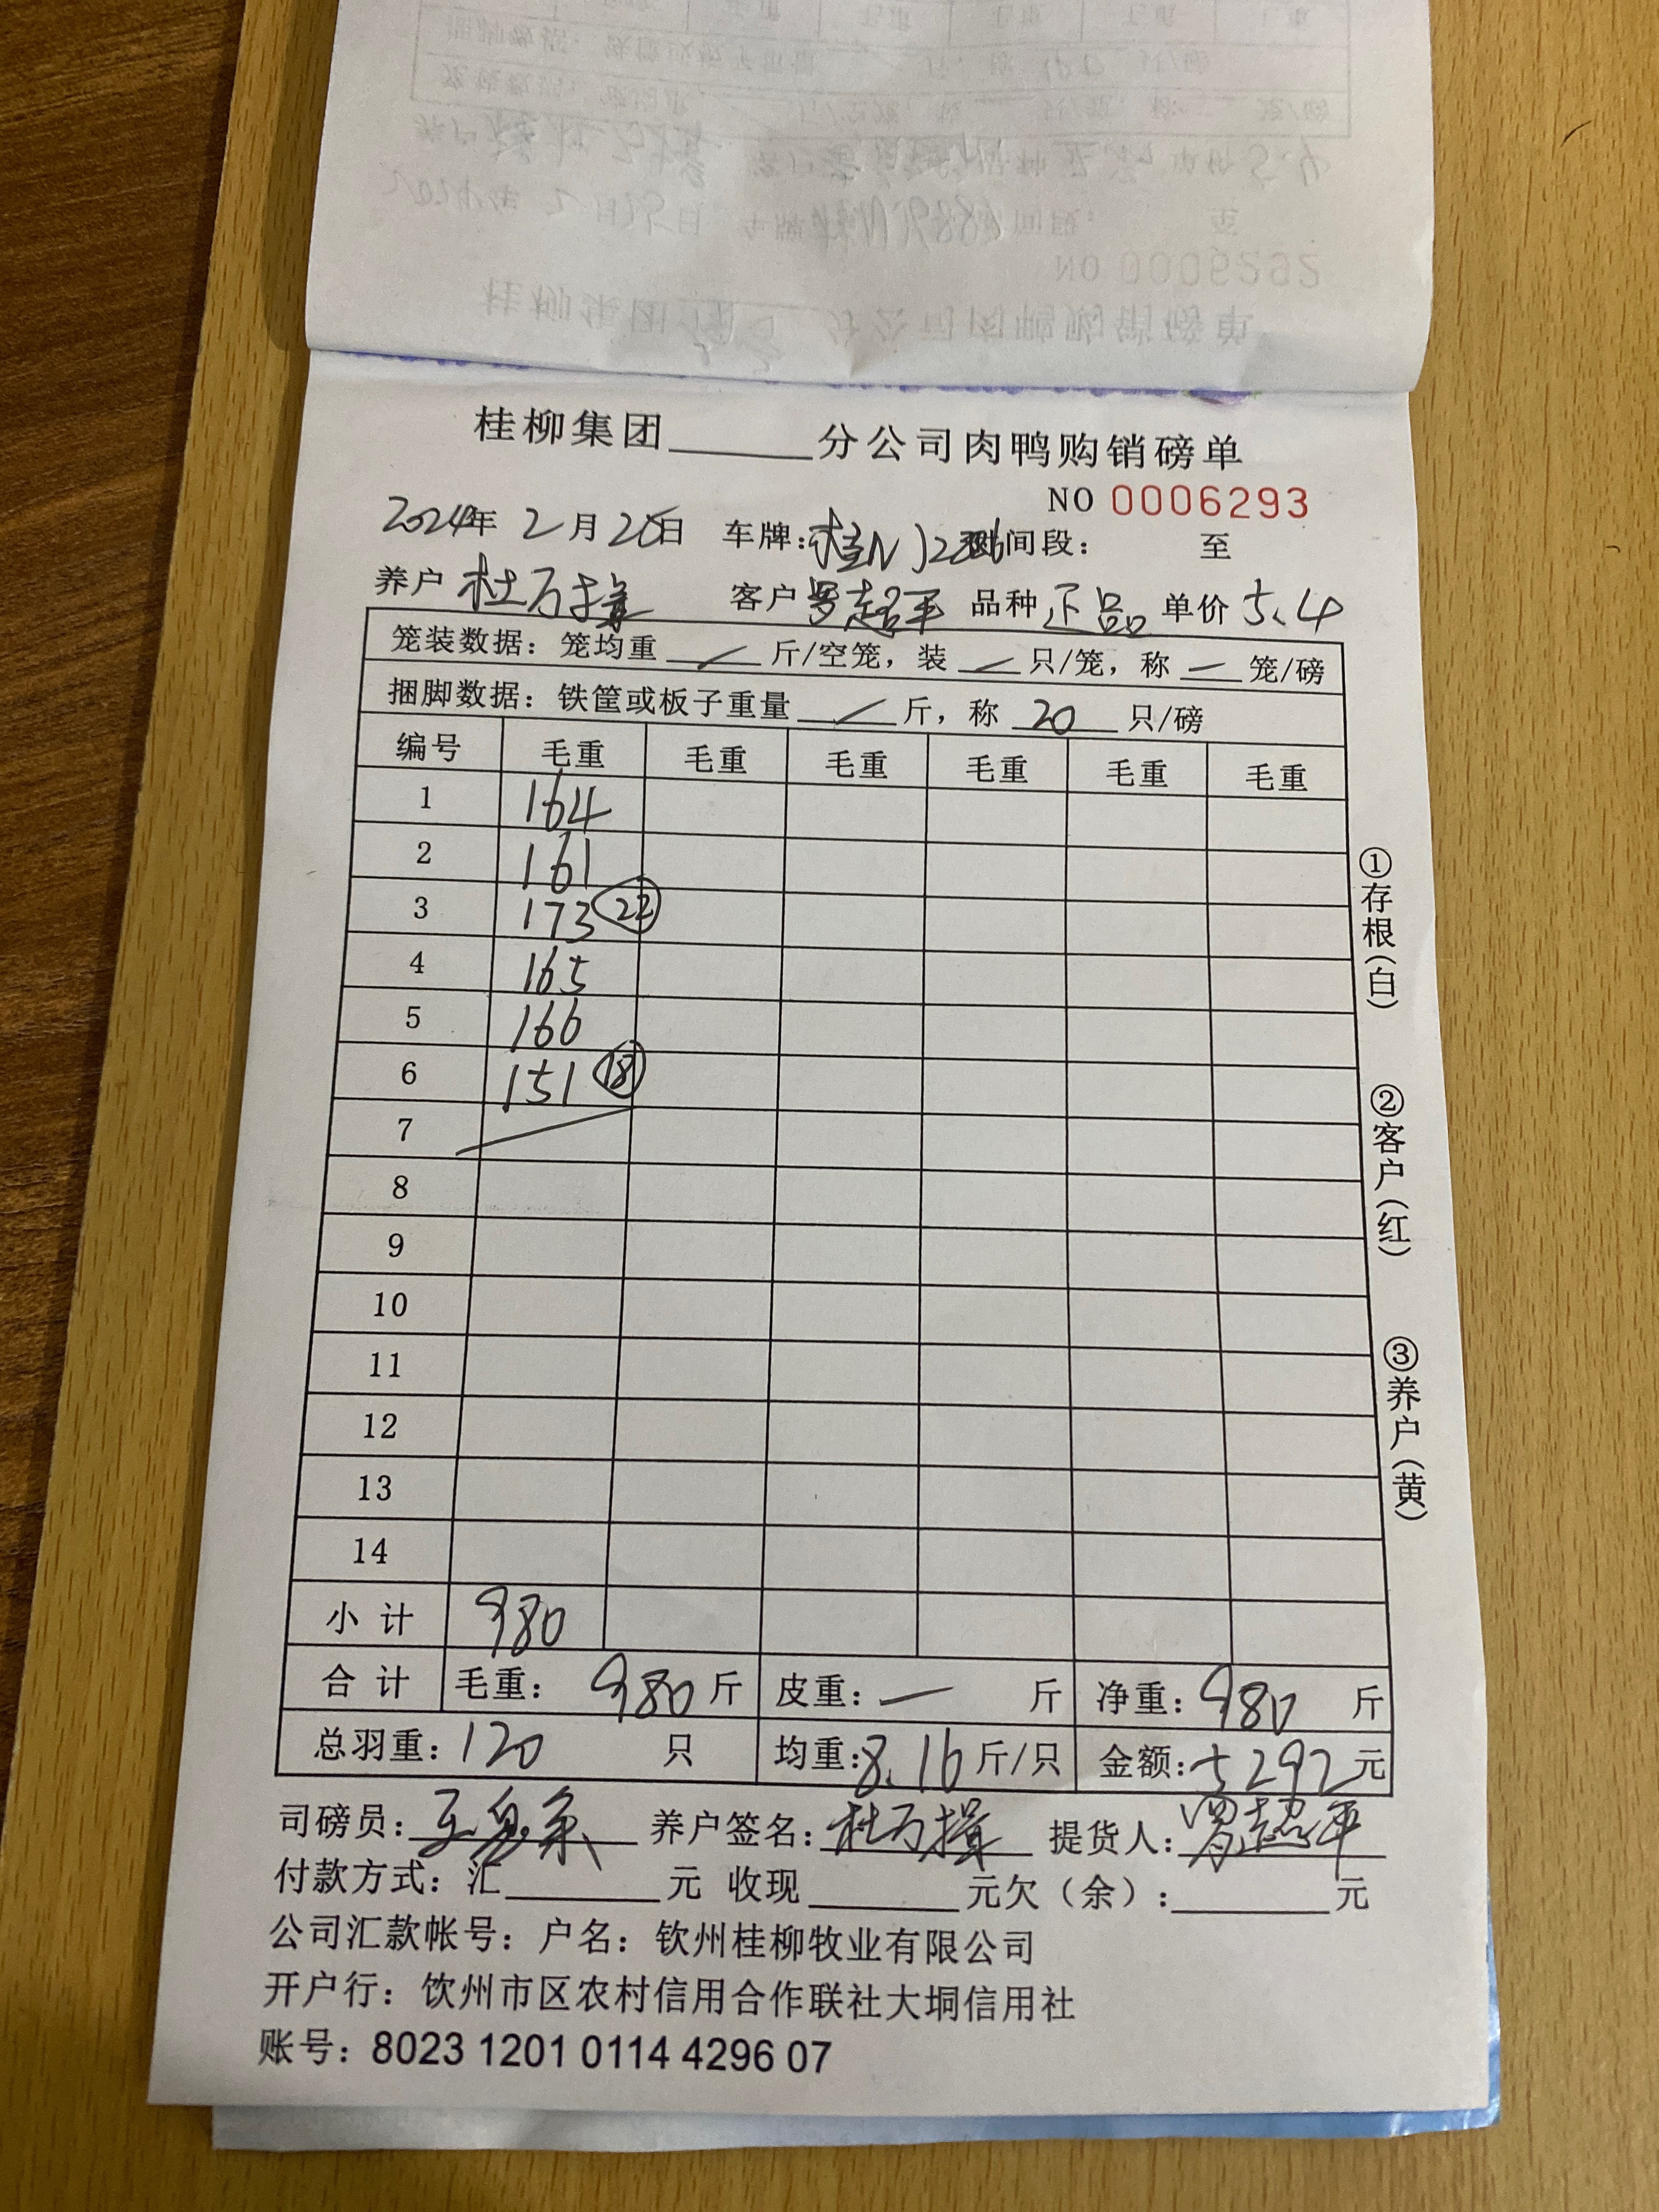 桂柳集团______分公司肉鸭购销磅单
NO 0006293
2024年 2月26日 车牌:桂N 时间段: 至
养户 杜万揖 客户 罗超平 品种 正品 单价 5.4
笼装数据: 笼均重 / 斤/空笼, 装 / 只/笼, 称 — 笼/磅
捆脚数据: 铁筐或板子重量 / 斤, 称 20 只/磅
编号 毛重 毛重 毛重 毛重 毛重 毛重
1 164
2 161
3 173 (22)
4 165
5 166
6 151 (18)
7
8
9
10
11
12
13
14
小计 980
合计 毛重: 980 斤 皮重: — 斤 净重: 980 斤
总羽重: 120 只 均重: 8.16 斤/只 金额: 5292元
司磅员: 养户签名: 杜万揖 提货人: 罗超平
付款方式: 汇______元 收现______元欠(余):______元
公司汇款帐号: 户名: 钦州桂柳牧业有限公司
开户行: 饮州市区农村信用合作联社大垌信用社
账号: 8023 1201 0114 4296 07
①存根(白)
②客户(红)
③养户(黄)